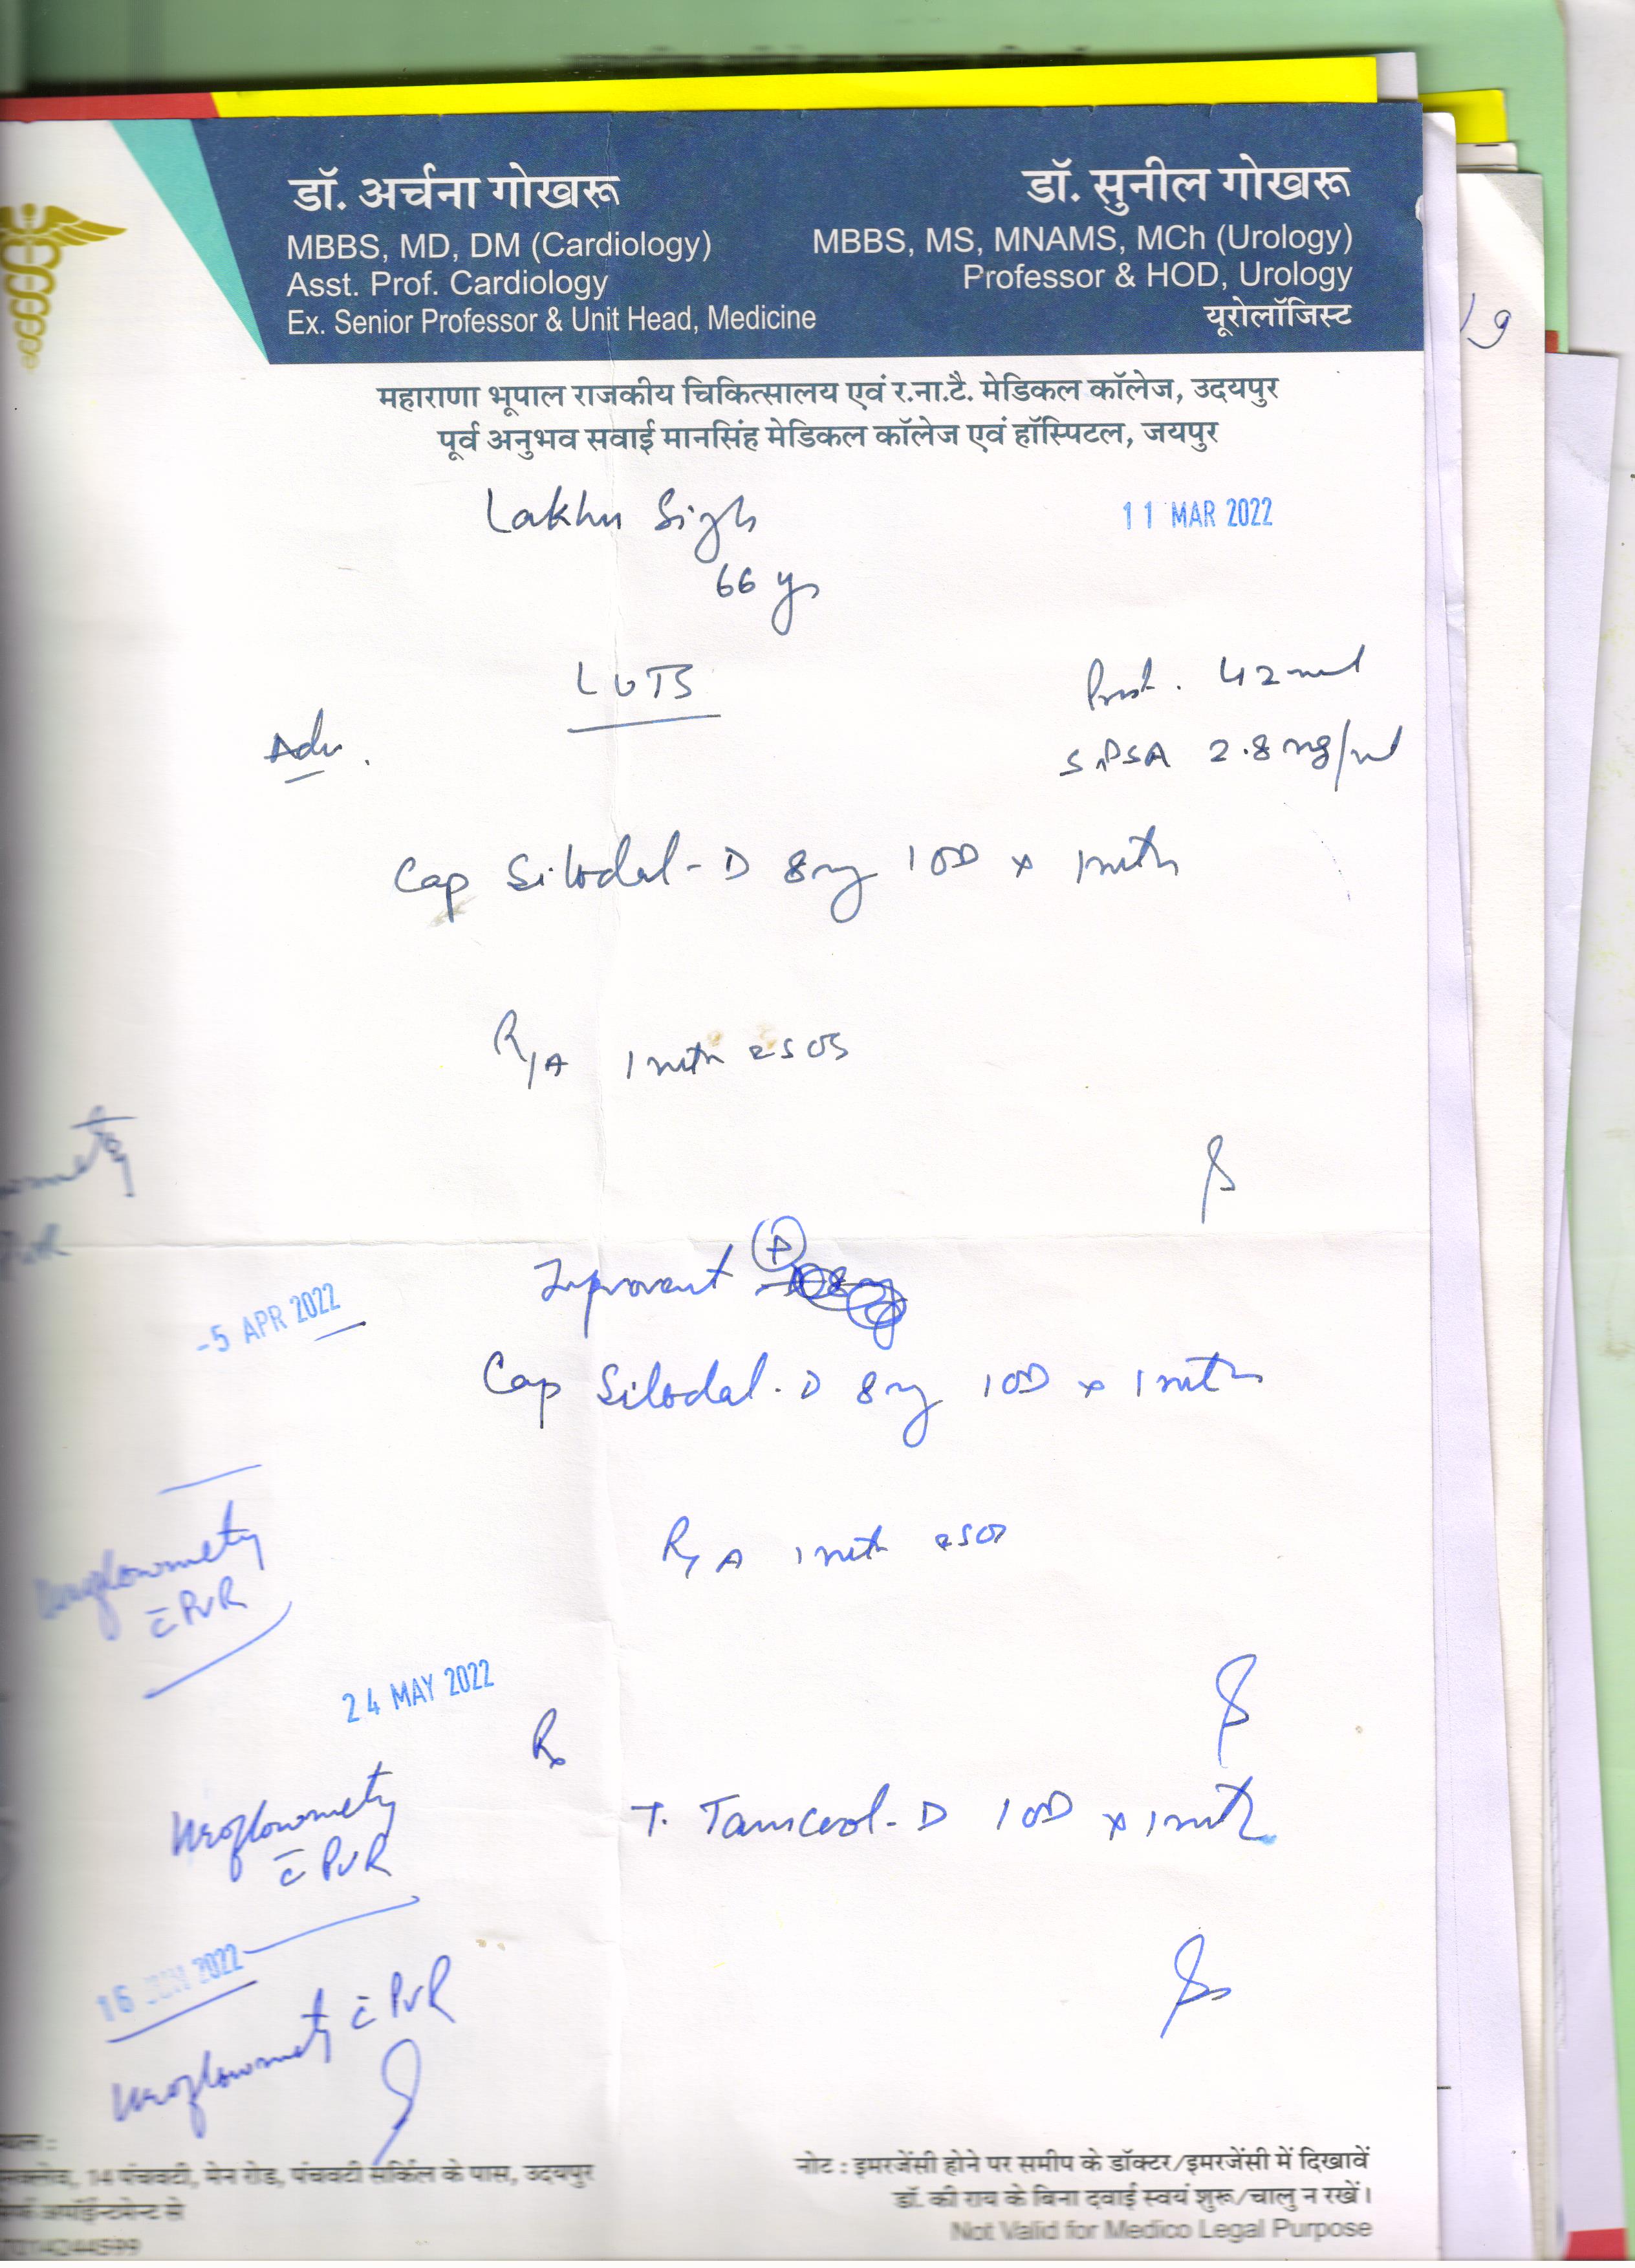 डॉ. अर्चना गोखरू
MBBS, MD, DM (Cardiology)
Asst. Prof. Cardiology
Ex. Senior Professor & Unit Head, Medicine
डॉ. सुनील गोखरू
MBBS, MS, MNAMS, MCh (Urology)
Professor & HOD, Urology
यूरोलॉजिस्ट
महाराणा भूपाल राजकीय चिकित्सालय एवं र.ना.टै. मेडिकल कॉलेज, उदयपुर
पूर्व अनुभव सवाई मानसिंह मेडिकल कॉलेज एवं हॉस्पिटल, जयपुर
19
Lakhu Sigh
11 MAR 2022
66 ys
LUTS
Prost. 42 ml
Adv.
S.PSA 2.8 ng/ml
Cap Silodal-D 8mg 1OD x 1mth
R/A 1 mth
Improvent
-5 APR 2022
Cap Silodal-D 8mg 1OD x 1mth
Uroflowmety
c̄ PVR
R/A 1 mth
24 MAY 2022
Rx
Uroflowmety
c̄ PVR
T. Tamcool-D 1OD x 1mth
16 JUN 2022
Uroflowmety c̄ PVR
14 पंचवटी, मेन रोड, पंचवटी सर्किल के पास, उदयपुर
नोट : इमरजेंसी होने पर समीप के डॉक्टर/इमरजेंसी में दिखावें
डॉ. की राय के बिना दवाई स्वयं शुरू/चालु न रखें।
Not Valid for Medico Legal Purpose